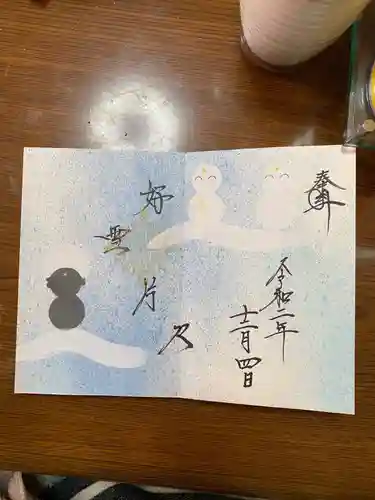 奉拝
令和二年
十二月四日
好雪片々